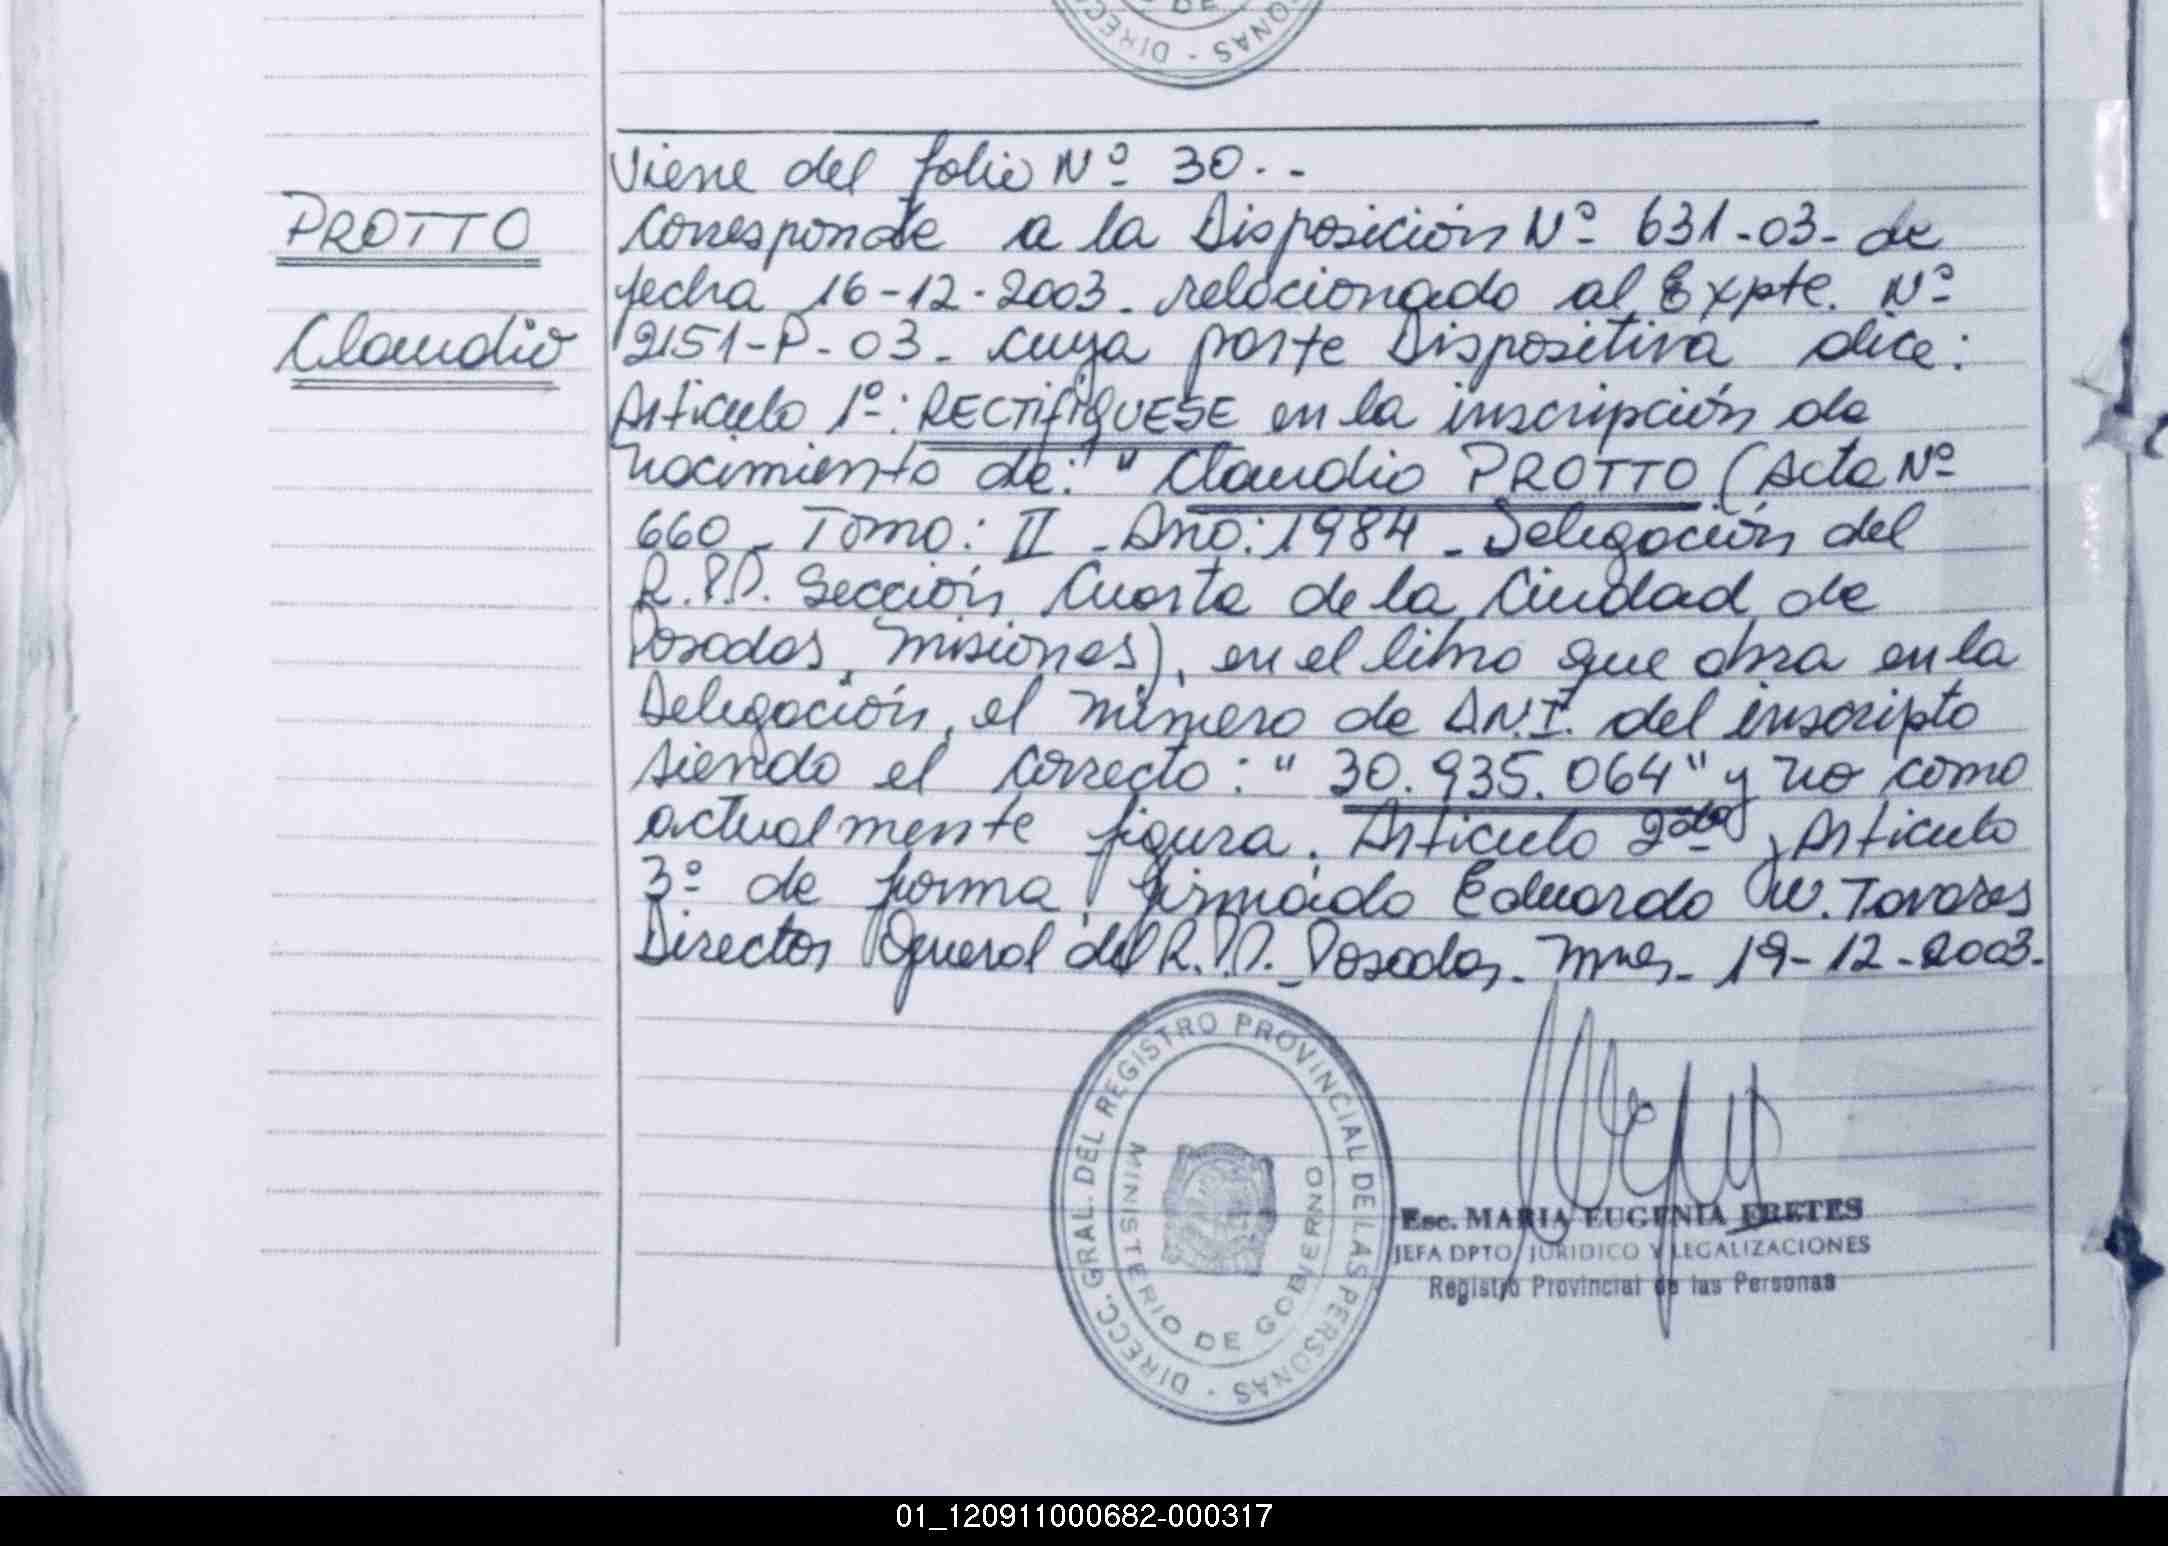 PROTTO
Claudio
Viene del folio Nº 30.-
Corresponde a la Disposición Nº 631-03- de
fecha 16-12-2003- relacionado al Expte. Nº
2151-P-03- cuya parte Dispositiva dice:
Articulo 1º: RECTIFIQUESE en la inscripción de
nacimiento de: "Claudio PROTTO (Acta Nº
660 - Tomo: II - Año: 1984 - Delegación del
R.P.P. Sección Cuarta de la Ciudad de
Posadas, Misiones), en el libro que obra en la
Delegación, el número de D.N.I. del inscripto
siendo el correcto: "30.935.064" y no como
actualmente figura. Articulo 2do y Articulo
3º de forma. firmado Eduardo W. Tavares
Director General del R.P.P. - Posadas - Mnes - 19-12-2003.
DIRECC. GRAL. DEL REGISTRO PROVINCIAL DE LAS PERSONAS
MINISTERIO DE GOBIERNO
Esc. MARIA EUGENIA FRETES
JEFA DPTO. JURIDICO Y LEGALIZACIONES
Registro Provincial de las Personas
01_120911000682-000317